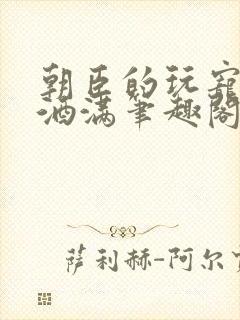 朝臣的玩寵
酒满笔趣阁
萨利赫-阿尔